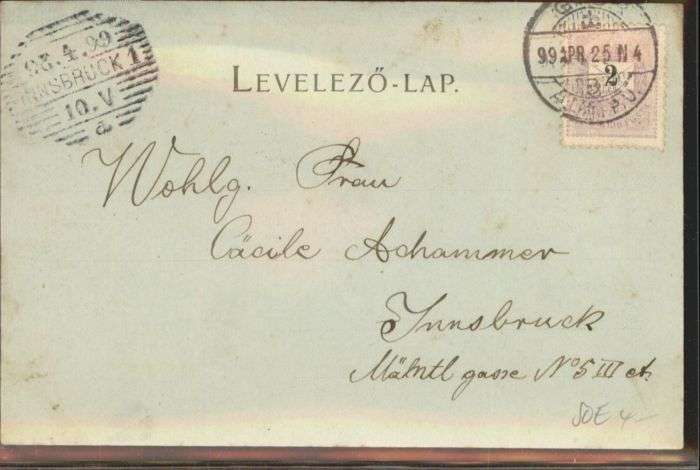 26.4.99
INNSBRUCK 1
10.V
a
99 APR 25 N 4
2
LEVELEZŐ-LAP.
Wohlg. Frau
Cäcile Achammer
Innsbruck
gasse No 5 III
SOE 4-